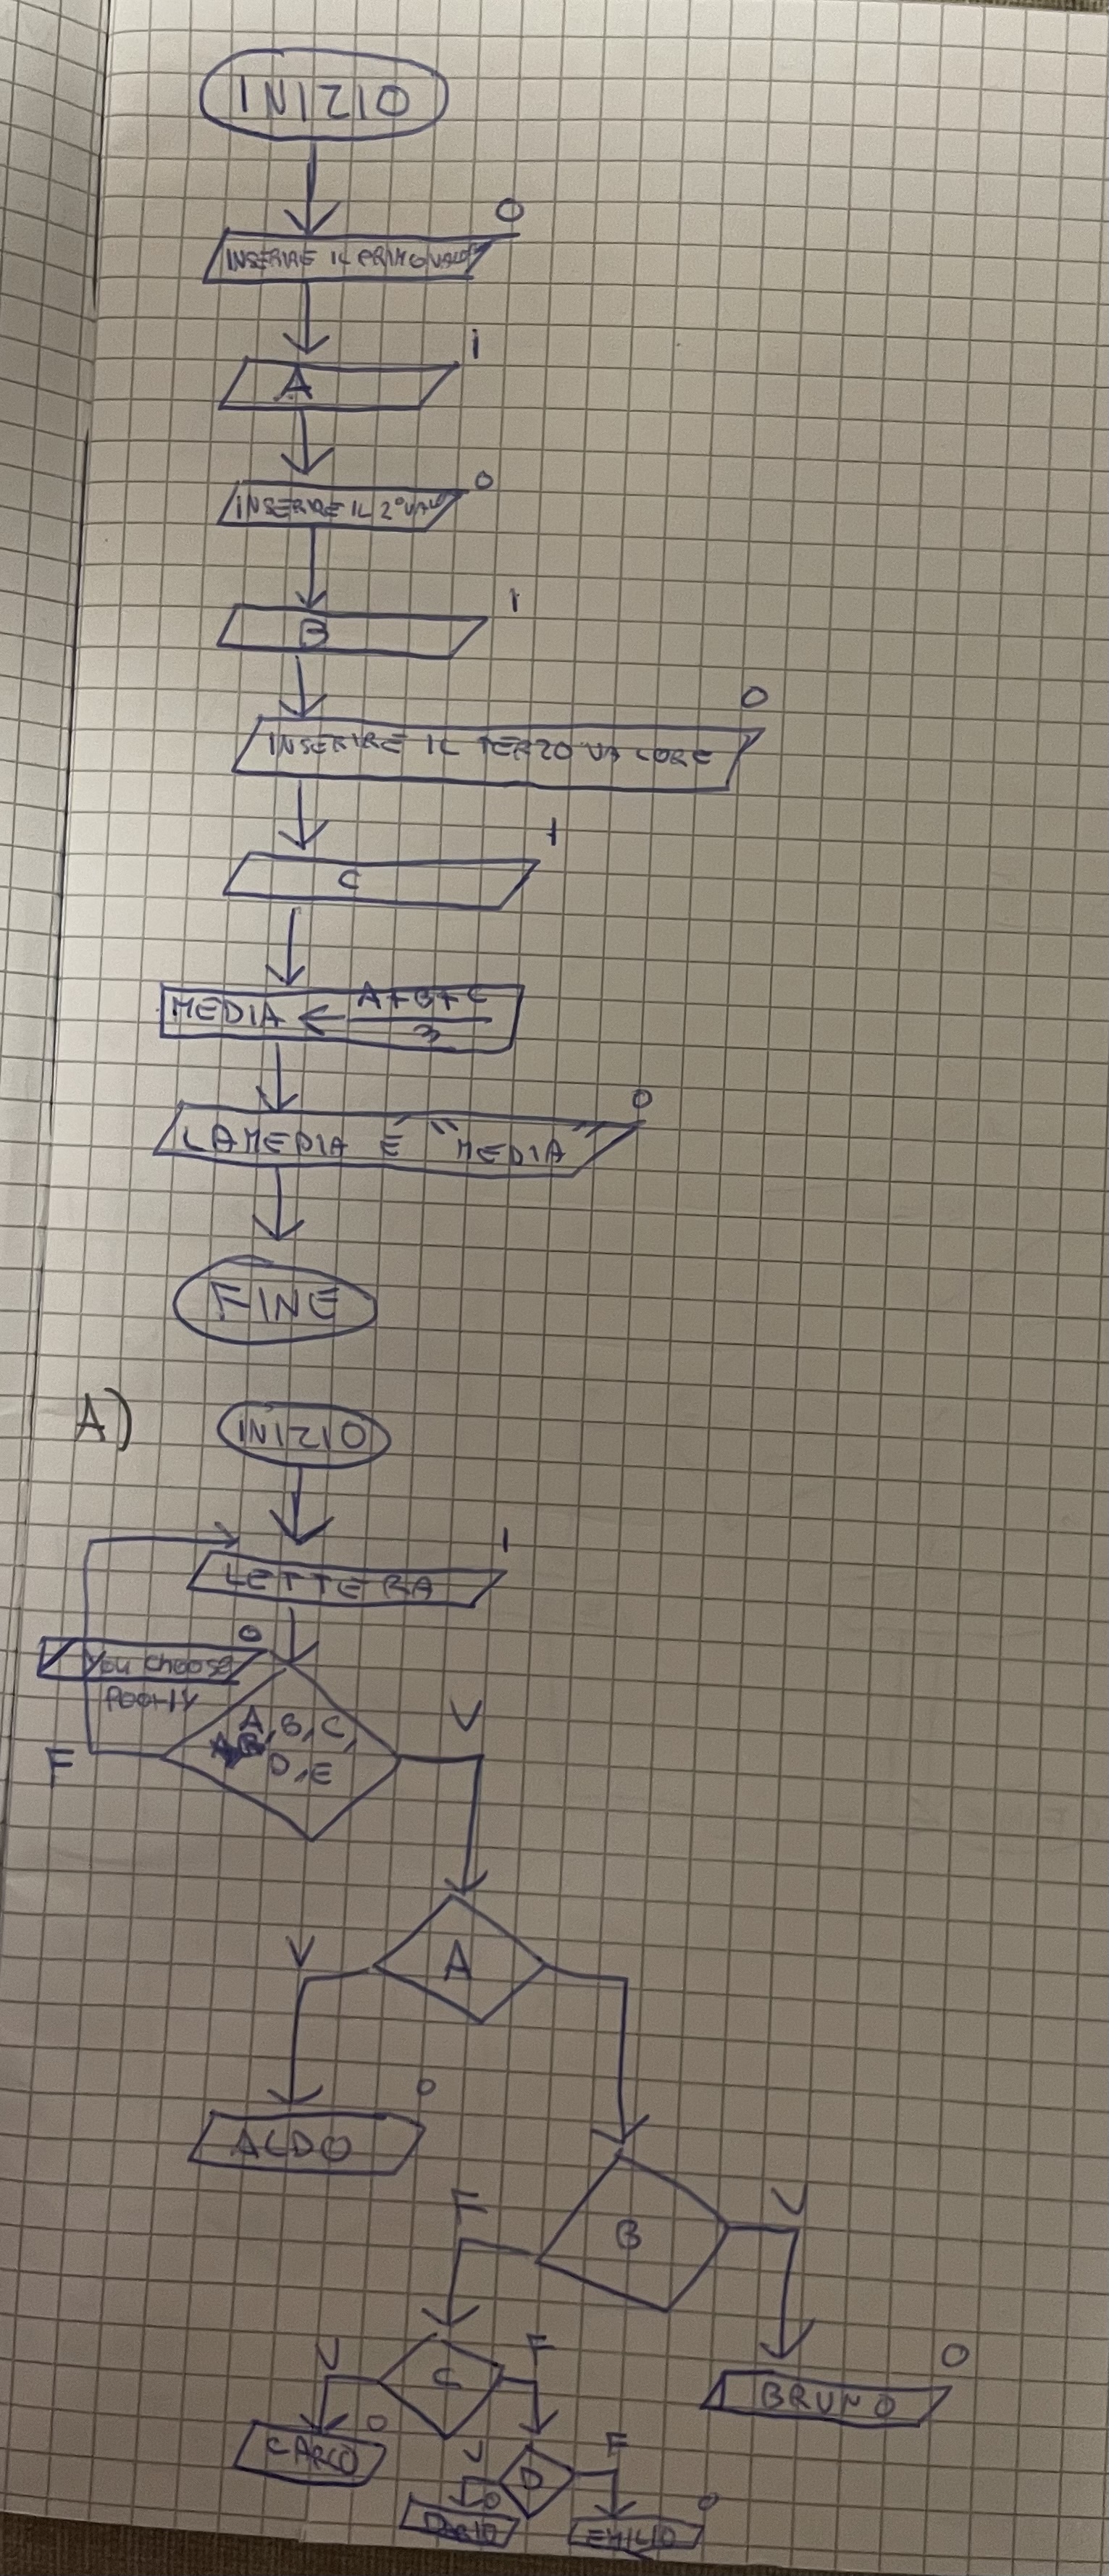 INIZIO
O
INSERIRE IL PRIMO VALORE
I
A
O
INSERIRE IL 2° VAL
I
B
O
INSERIRE IL TERZO VALORE
I
C
MEDIA ← A+B+C
3
O
LA MEDIA È "MEDIA"
FINE
A) INIZIO
I
LETTERA
O
You choose
Poorly
V
A, B, C,
D, E
F
V
A
O
ALDO
F
V
B
V
F
O
C
BRUNO
O
CARLO
V
F
D
O
O
DARIO
EMILIO